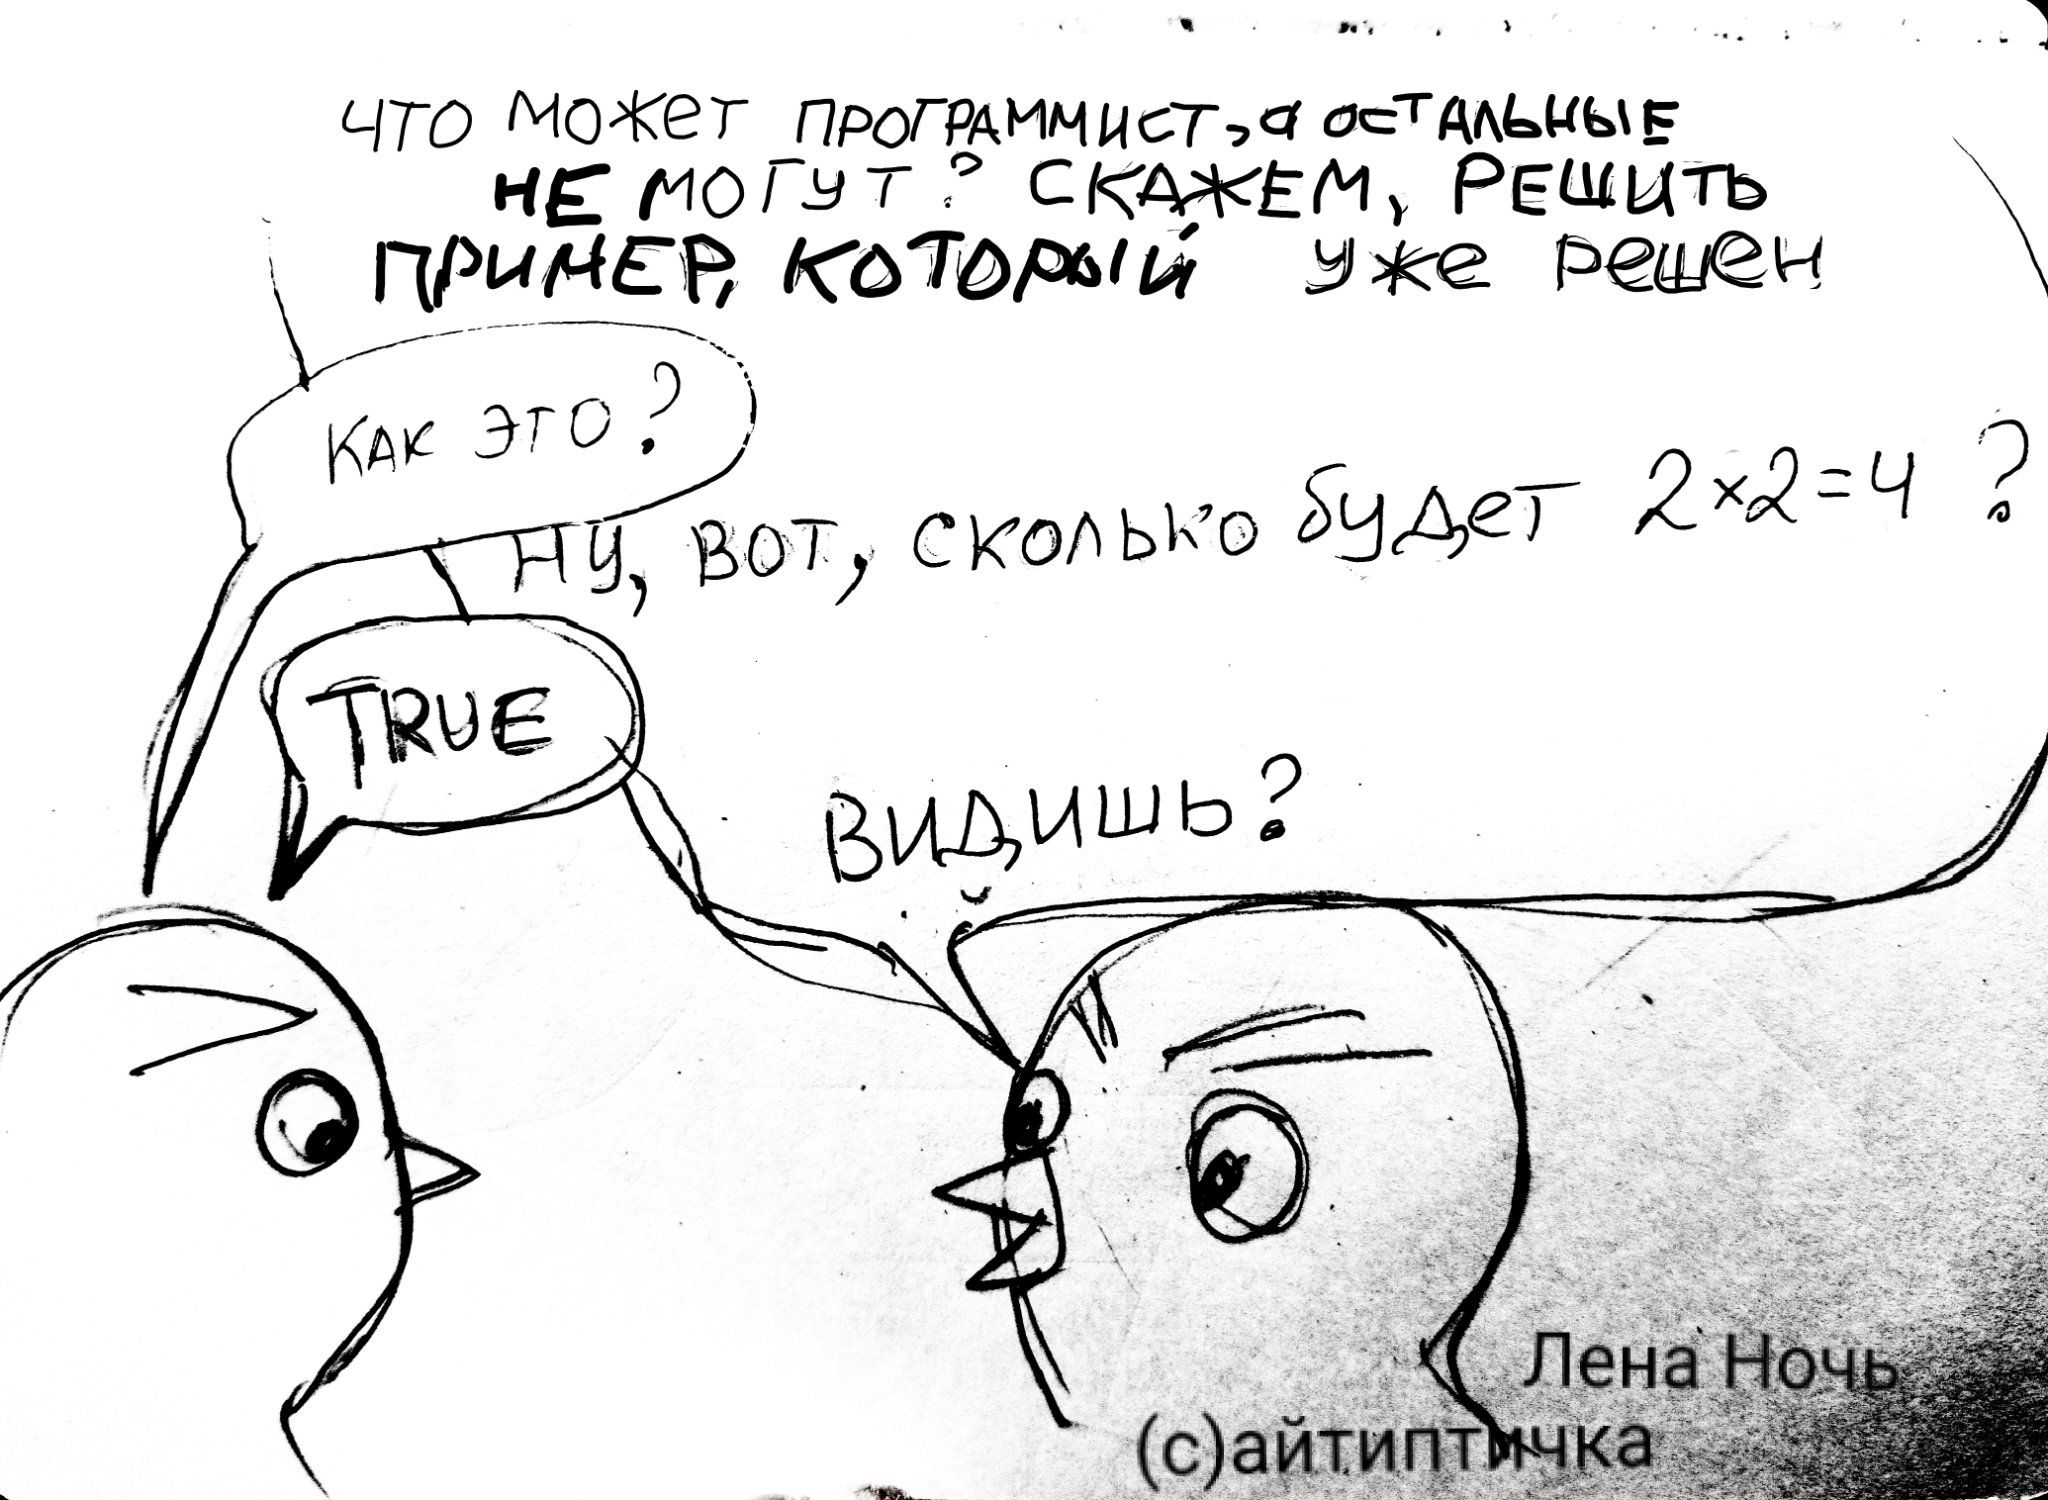 что может программист, а остальные
не могут? Скажем, решить
пример, который уже решен
Как это?
Ну, вот, сколько будет 2×2=4?
TRUE
Видишь?
Лена Ночь
(с)айтиптичка